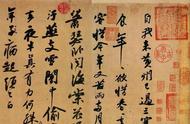 自我來黃州已過三寒
食年年欲惜春春去不
容惜今年又苦雨兩月秋
蕭瑟卧聞海棠花泥
汙燕支雪闇中偷
負去夜半真有力何殊
病少年病起頭已白